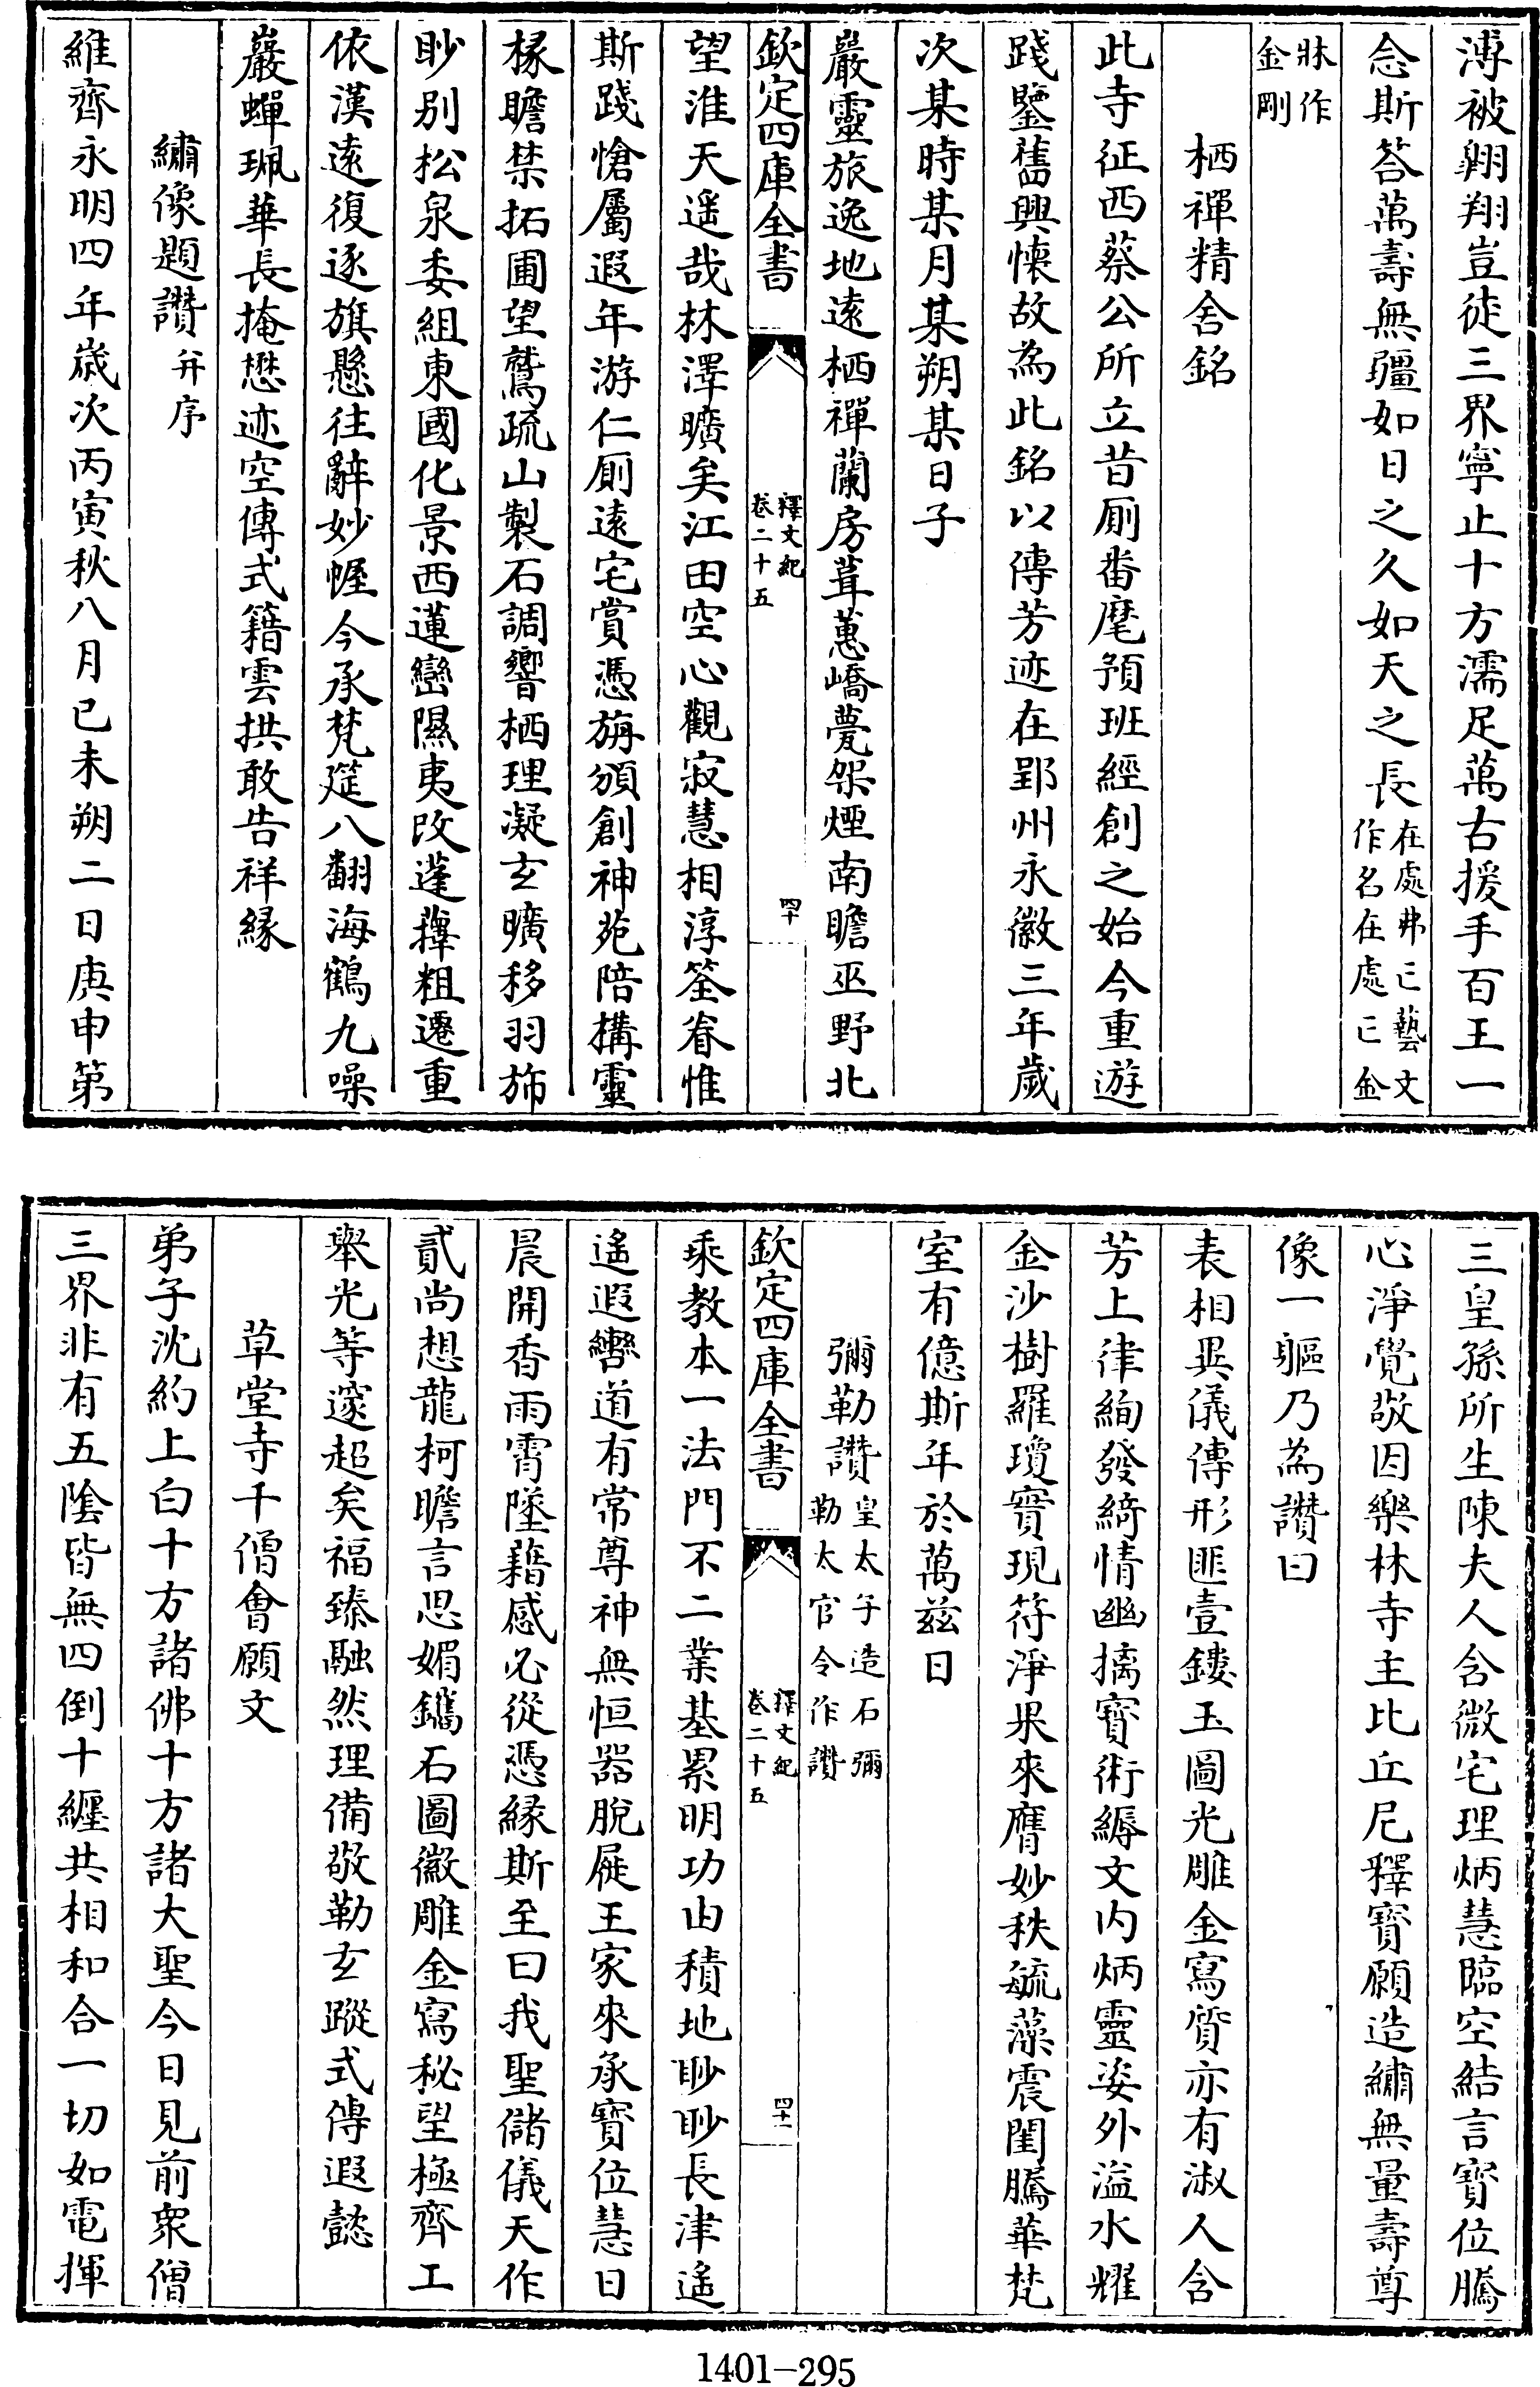 溥被翱翔豈徒三界寧止十方濡足萬古援手百王一
念斯荅萬壽無疆如日之久如天之長在處弗亡藝文作名在處亡金
牀作金剛
栖禪精舍銘
此寺征西蔡公所立昔厠番麾預班經創之始今重遊
踐鑒舊興懷故為此銘以傳芳迹在郢州永徽三年歲
次某時某月某朔某日子
巖靈旅逸地遠栖禪蘭房葺蕙嶠甍架煙南瞻巫野北
欽定四庫全書 釋文紀卷二十五 四十
望淮天遥哉林澤曠矣江田空心觀寂慧相淳筌眷惟
斯踐愴屬遐年游仁厠遠宅賞憑旃頒創神苑陪構靈
椽瞻禁拓圃望鷲疏山製石調響栖理凝玄曠移羽旆
眇别松泉委組東國化景西蓮巒隰夷改蓬蓽粗遷重
依漢遠復逐旗懸往辭妙幄今承梵筵八翻海鶴九噪
巖蟬珮華長掩懋迹空傳式籍雲拱敢告祥縁
繡像題讚并序
維齊永明四年歲次丙寅秋八月已未朔二日庚申第
三皇孫所生陳夫人含微宅理炳慧臨空結言寶位騰
心淨覺敬因樂林寺主比丘尼釋寶願造繡無量壽尊
像一軀乃為讚曰
表相異儀傳形匪壹鏤玉圖光雕金寫質亦有淑人含
芳上律絢發綺情幽摛寶術縟文内炳靈姿外溢水耀
金沙樹羅瓊實現符淨果來膺妙秩毓藻震閨騰華梵
室有億斯年於萬兹日
彌勒讚皇太子造石彌勒太官令作讚
欽定四庫全書 釋文紀卷二十五 四十一
乘教本一法門不二業基累明功由積地眇眇長津遥
遥遐轡道有常尊神無恒器脫屣王家來承寶位慧日
晨開香雨霄墜藉感必從憑縁斯至曰我聖儲儀天作
貳尚想龍柯瞻言思媚鐫石圖徽雕金寫秘望極齊工
舉光等邃超矣福臻融然理備敬勒玄蹤式傳遐懿
草堂寺千僧會願文
弟子沈約上白十方諸佛十方諸大聖今日見前衆僧
三界非有五陰皆無四倒十纏共相和合一切如電揮
1401-295